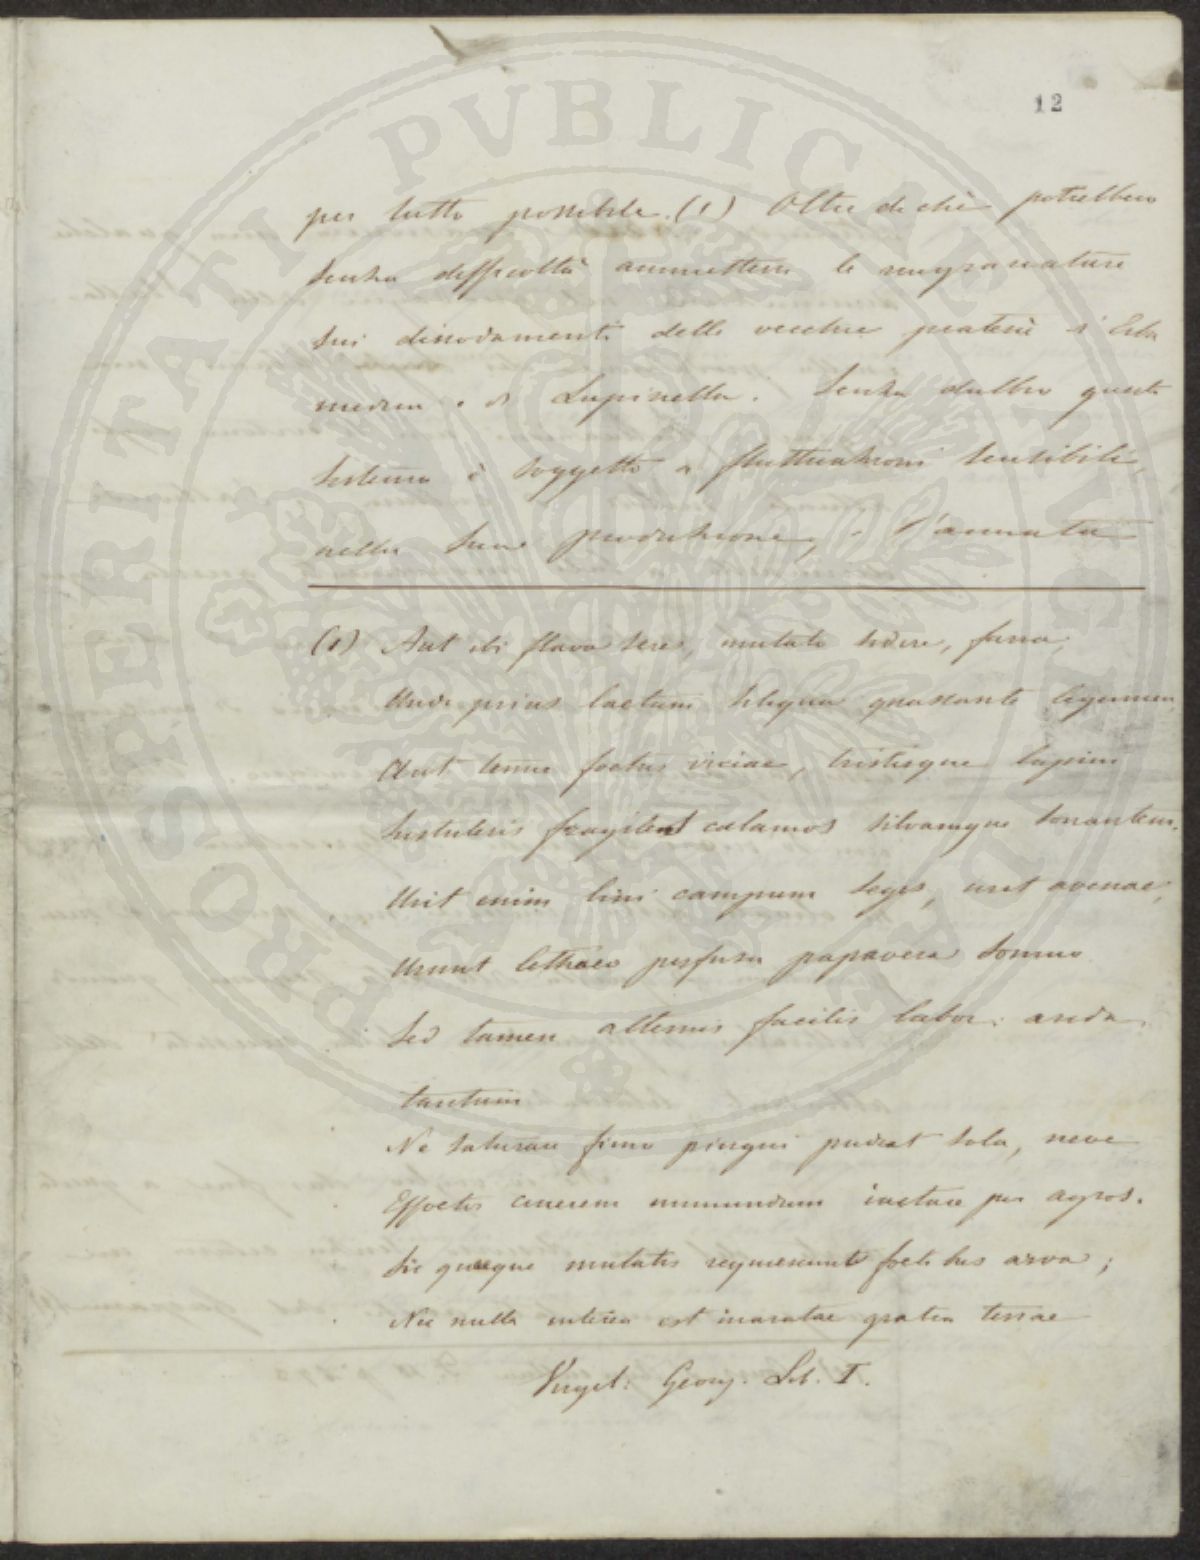 12
per tutto possibile. (1) Oltre di chè potrebbero
senza difficoltà ammettersi le ringranature
sui dissodamenti delle vecchie praterie d'Erba
medica e di Lupinella. Senza dubbio questo
sistema è soggetto a fluttuazioni sensibili,
nella sua produzione, e l'annata
(1) Aut ibi flava seres, mutato sidere, farra,
Unde prius laetum siliqua quassante legumen,
Aut tenuis foetus viciae, tristisque lupini
Sustuleris fragiles calamos silvamque sonantem.
Urit enim lini campum seges, urit avenae,
Urunt lethaeo perfusa papavera somno
Sed tamen alternis facilis labor: arida
tantum
Ne saturare fimo pingui pudeat sola, neve
Effoetos cinerem immundum iactare per agros.
Sic quoque mutatis requiescunt foetibus arva;
Nec nulla interea est inaratae gratia terrae
Virgil: Georg. Lib. I.
PROSPERITATI PVBLICAE AVGENDAE